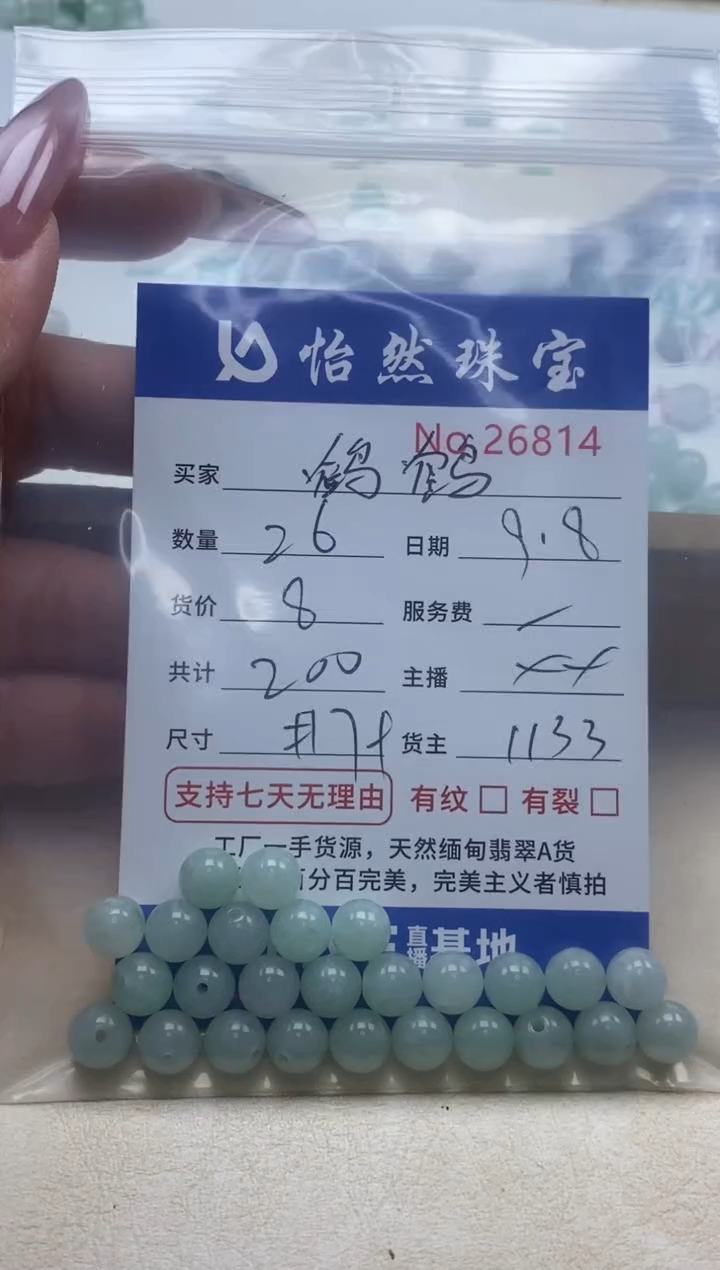 怡然珠宝
No.26814
买家 鹤鹤
数量 26 日期 9.8
货价 8 服务费 /
共计 200 主播 ××
尺寸 货主 1133
支持七天无理由 有纹 □ 有裂 □
工厂一手货源，天然缅甸翡翠A货
百分百完美，完美主义者慎拍
直播基地